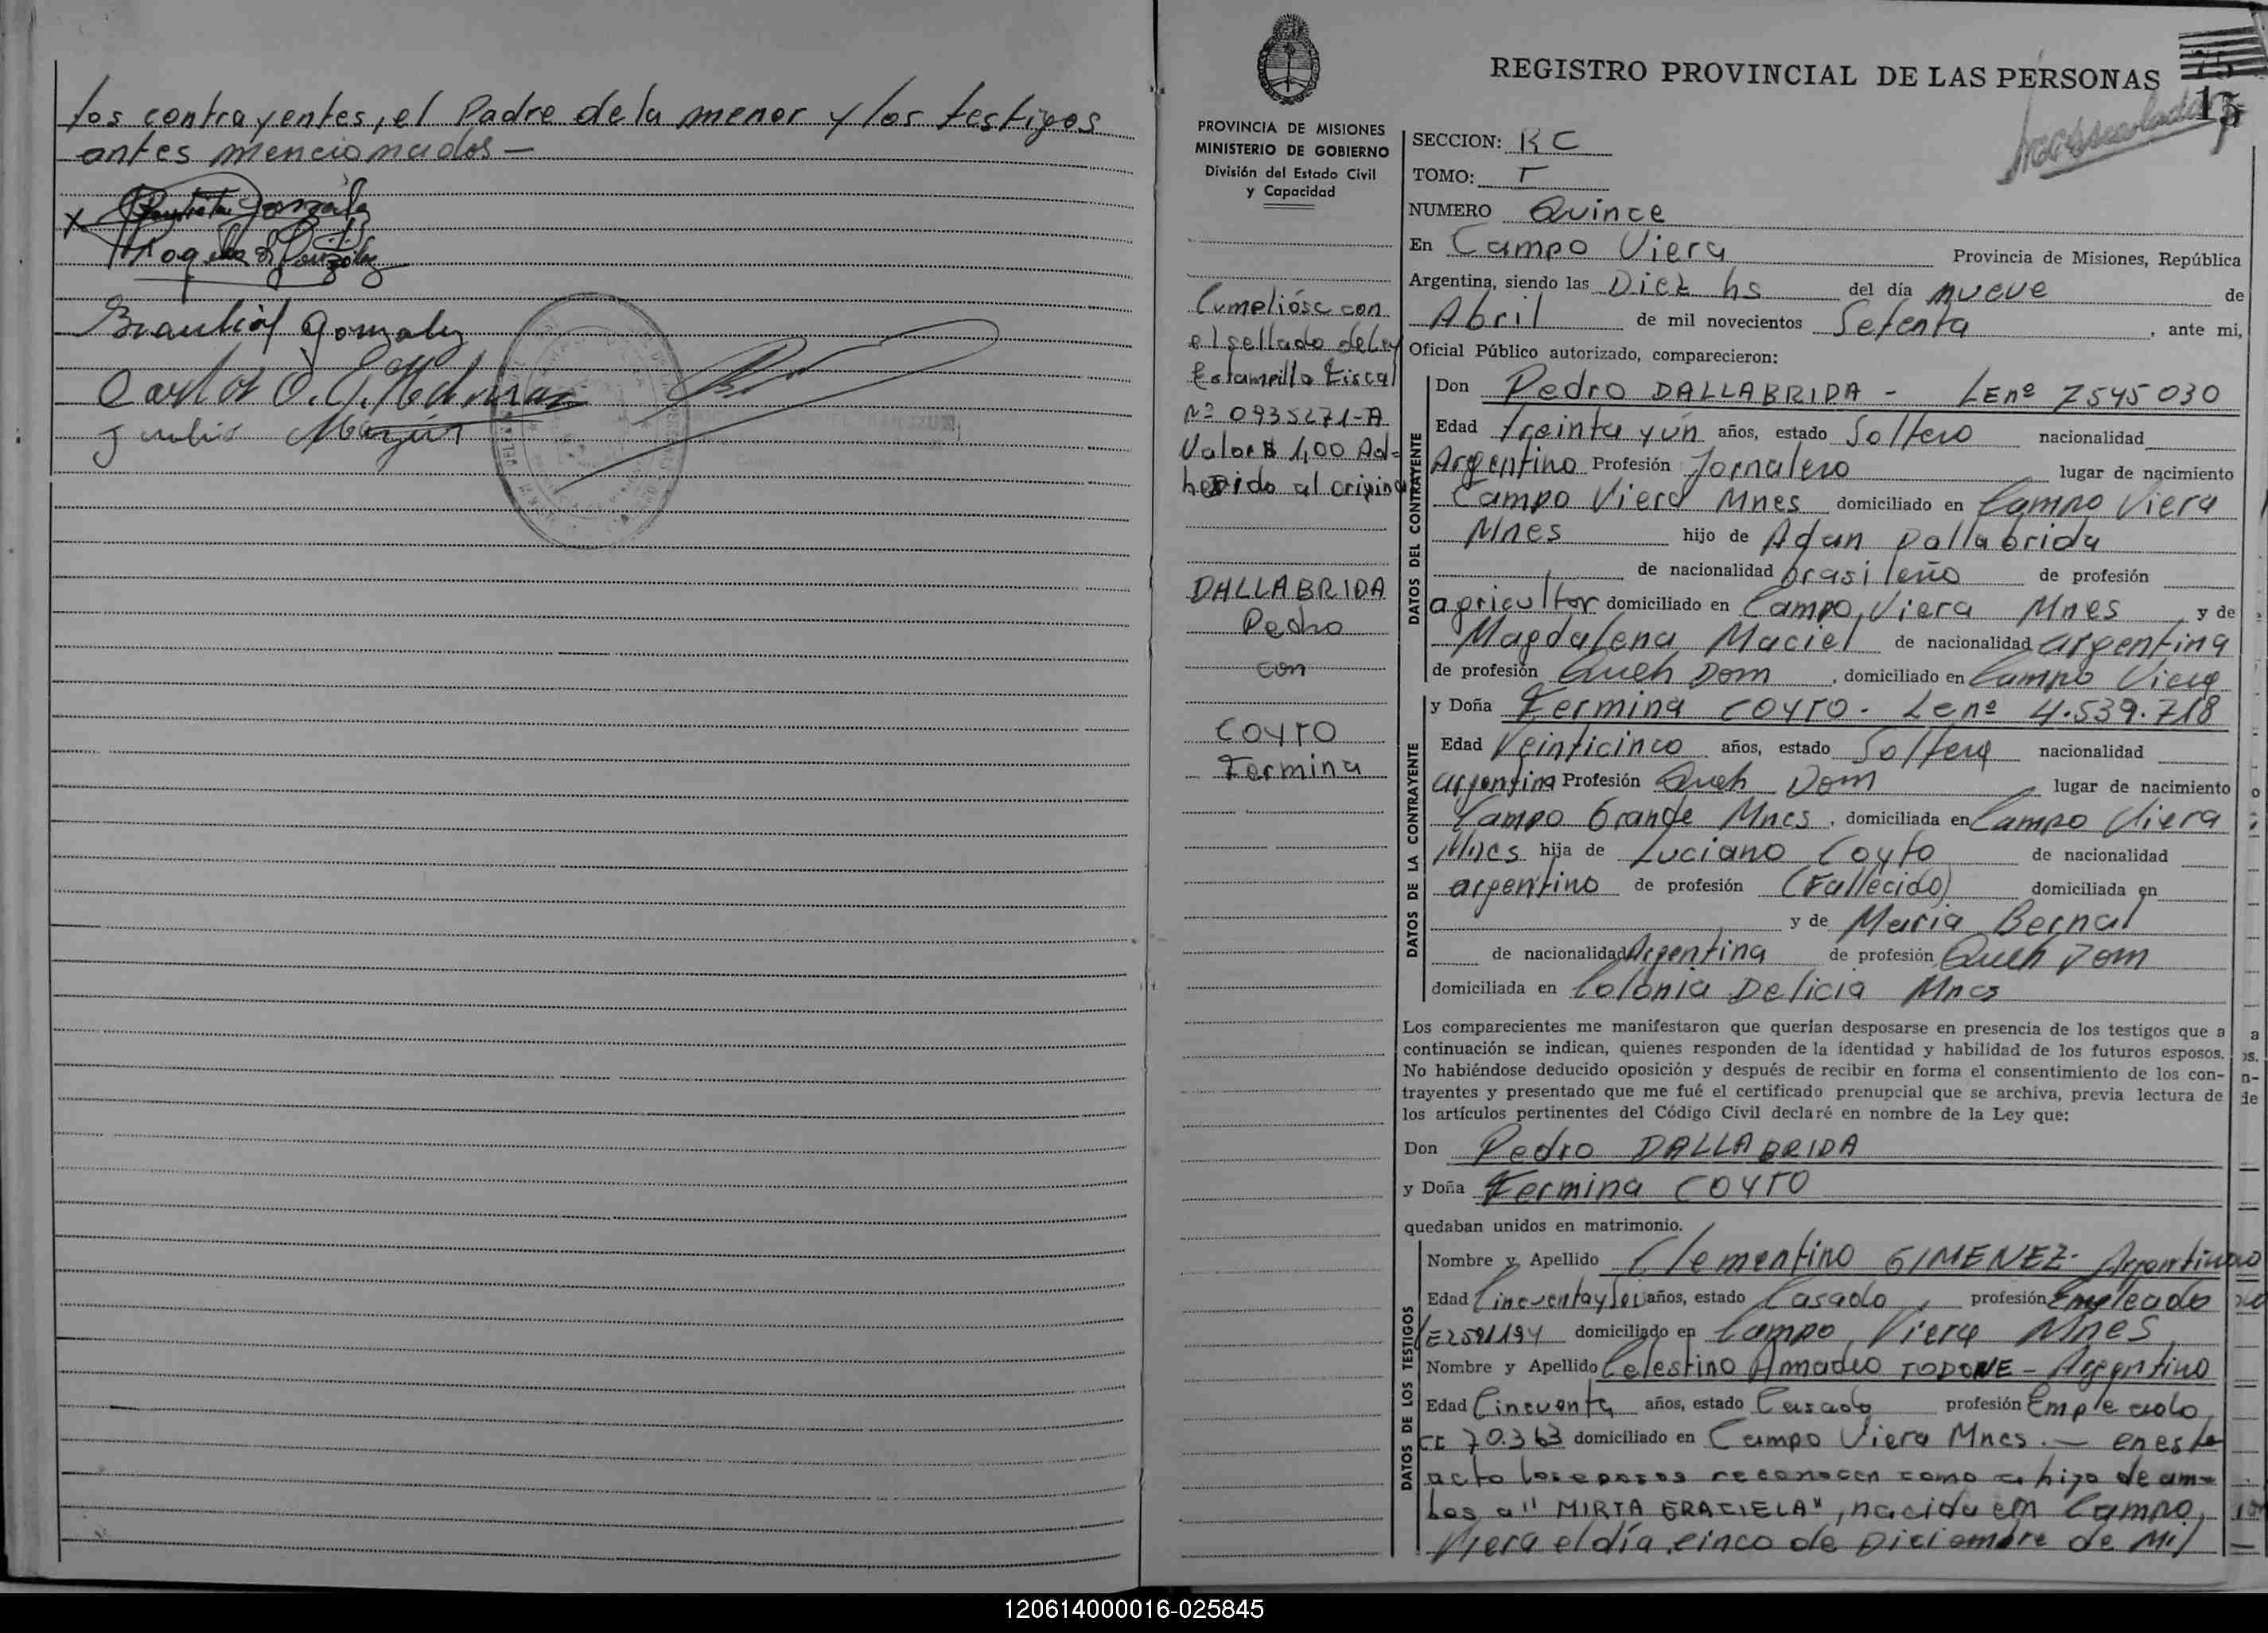 los contrayentes, el Padre de la menor y los testigos
antes mencionados —
X
Braulio Gonzalez
REGISTRO PROVINCIAL DE LAS PERSONAS
15
PROVINCIA DE MISIONES
MINISTERIO DE GOBIERNO
División del Estado Civil
y Capacidad
Cumplióse con
el sellado de Ley
Estampilla Fiscal
Nº 0935271-A
Valor $ 1,00 Ad-
herido al original
DALLABRIDA
Pedro
con
COYTO
Fermina
SECCION: RC
TOMO: I
NUMERO Quince
En Campo Viera Provincia de Misiones, República
Argentina, siendo las Diez hs del día nueve de
Abril de mil novecientos Setenta, ante mi,
Oficial Público autorizado, comparecieron:
DATOS DEL CONTRAYENTE
Don Pedro DALLABRIDA - LEnº 7545030
Edad treinta y ún años, estado Soltero nacionalidad
Argentino Profesión Jornalero lugar de nacimiento
Campo Viera Mnes domiciliado en Campo Viera
Mnes hijo de Adan Dallabrida
de nacionalidad brasileño de profesión
agricultor domiciliado en Campo Viera Mnes y de
Magdalena Maciel de nacionalidad argentina
de profesión Queh Dom, domiciliado en Campo Viera
DATOS DE LA CONTRAYENTE
y Doña Fermina COYTO. Lenº 4.539.718
Edad Veinticinco años, estado Soltera nacionalidad
argentina Profesión Queh Dom lugar de nacimiento
Campo Grande Mnes, domiciliada en Campo Viera
Mnes hija de Luciano Coyto de nacionalidad
argentino de profesión (Fallecido) domiciliada en
y de Maria Bernal
de nacionalidad Argentina de profesión Queh Dom
domiciliada en Colonia Delicia Mnes
Los comparecientes me manifestaron que querían desposarse en presencia de los testigos que a
continuación se indican, quienes responden de la identidad y habilidad de los futuros esposos.
No habiéndose deducido oposición y después de recibir en forma el consentimiento de los con-
trayentes y presentado que me fué el certificado prenupcial que se archiva, previa lectura de
los artículos pertinentes del Código Civil declaré en nombre de la Ley que:
Don Pedro DALLABRIDA
y Doña Fermina COYTO
quedaban unidos en matrimonio.
DATOS DE LOS TESTIGOS
Nombre y Apellido Clementino GIMENEZ- Argentino
Edad Cincuenta y Seis años, estado Casado, profesión Empleado
LE2581194 domiciliado en Campo Viera Mnes
Nombre y Apellido Celestino Amadeo TODONE - Argentino
Edad Cincuenta años, estado Casado profesión Empleado
CI 70.363 domiciliado en Campo Viera Mnes. — en este
acto los eposos reconocen como a hijo de am-
bos a "MIRTA GRACIELA", nacida em Campo
Viera el día cinco de Diciembre de Mil
120614000016-025845